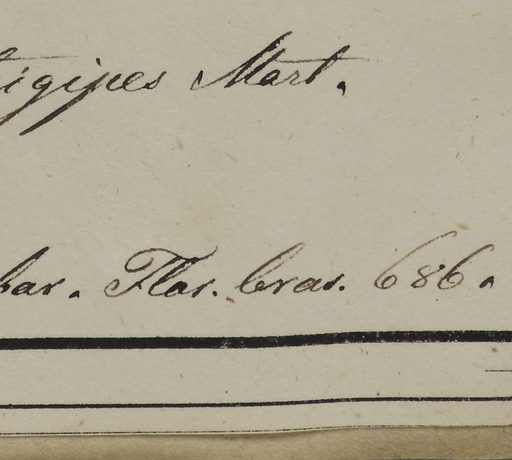 tigipes Mart.
bar. Flor. bras. 686.